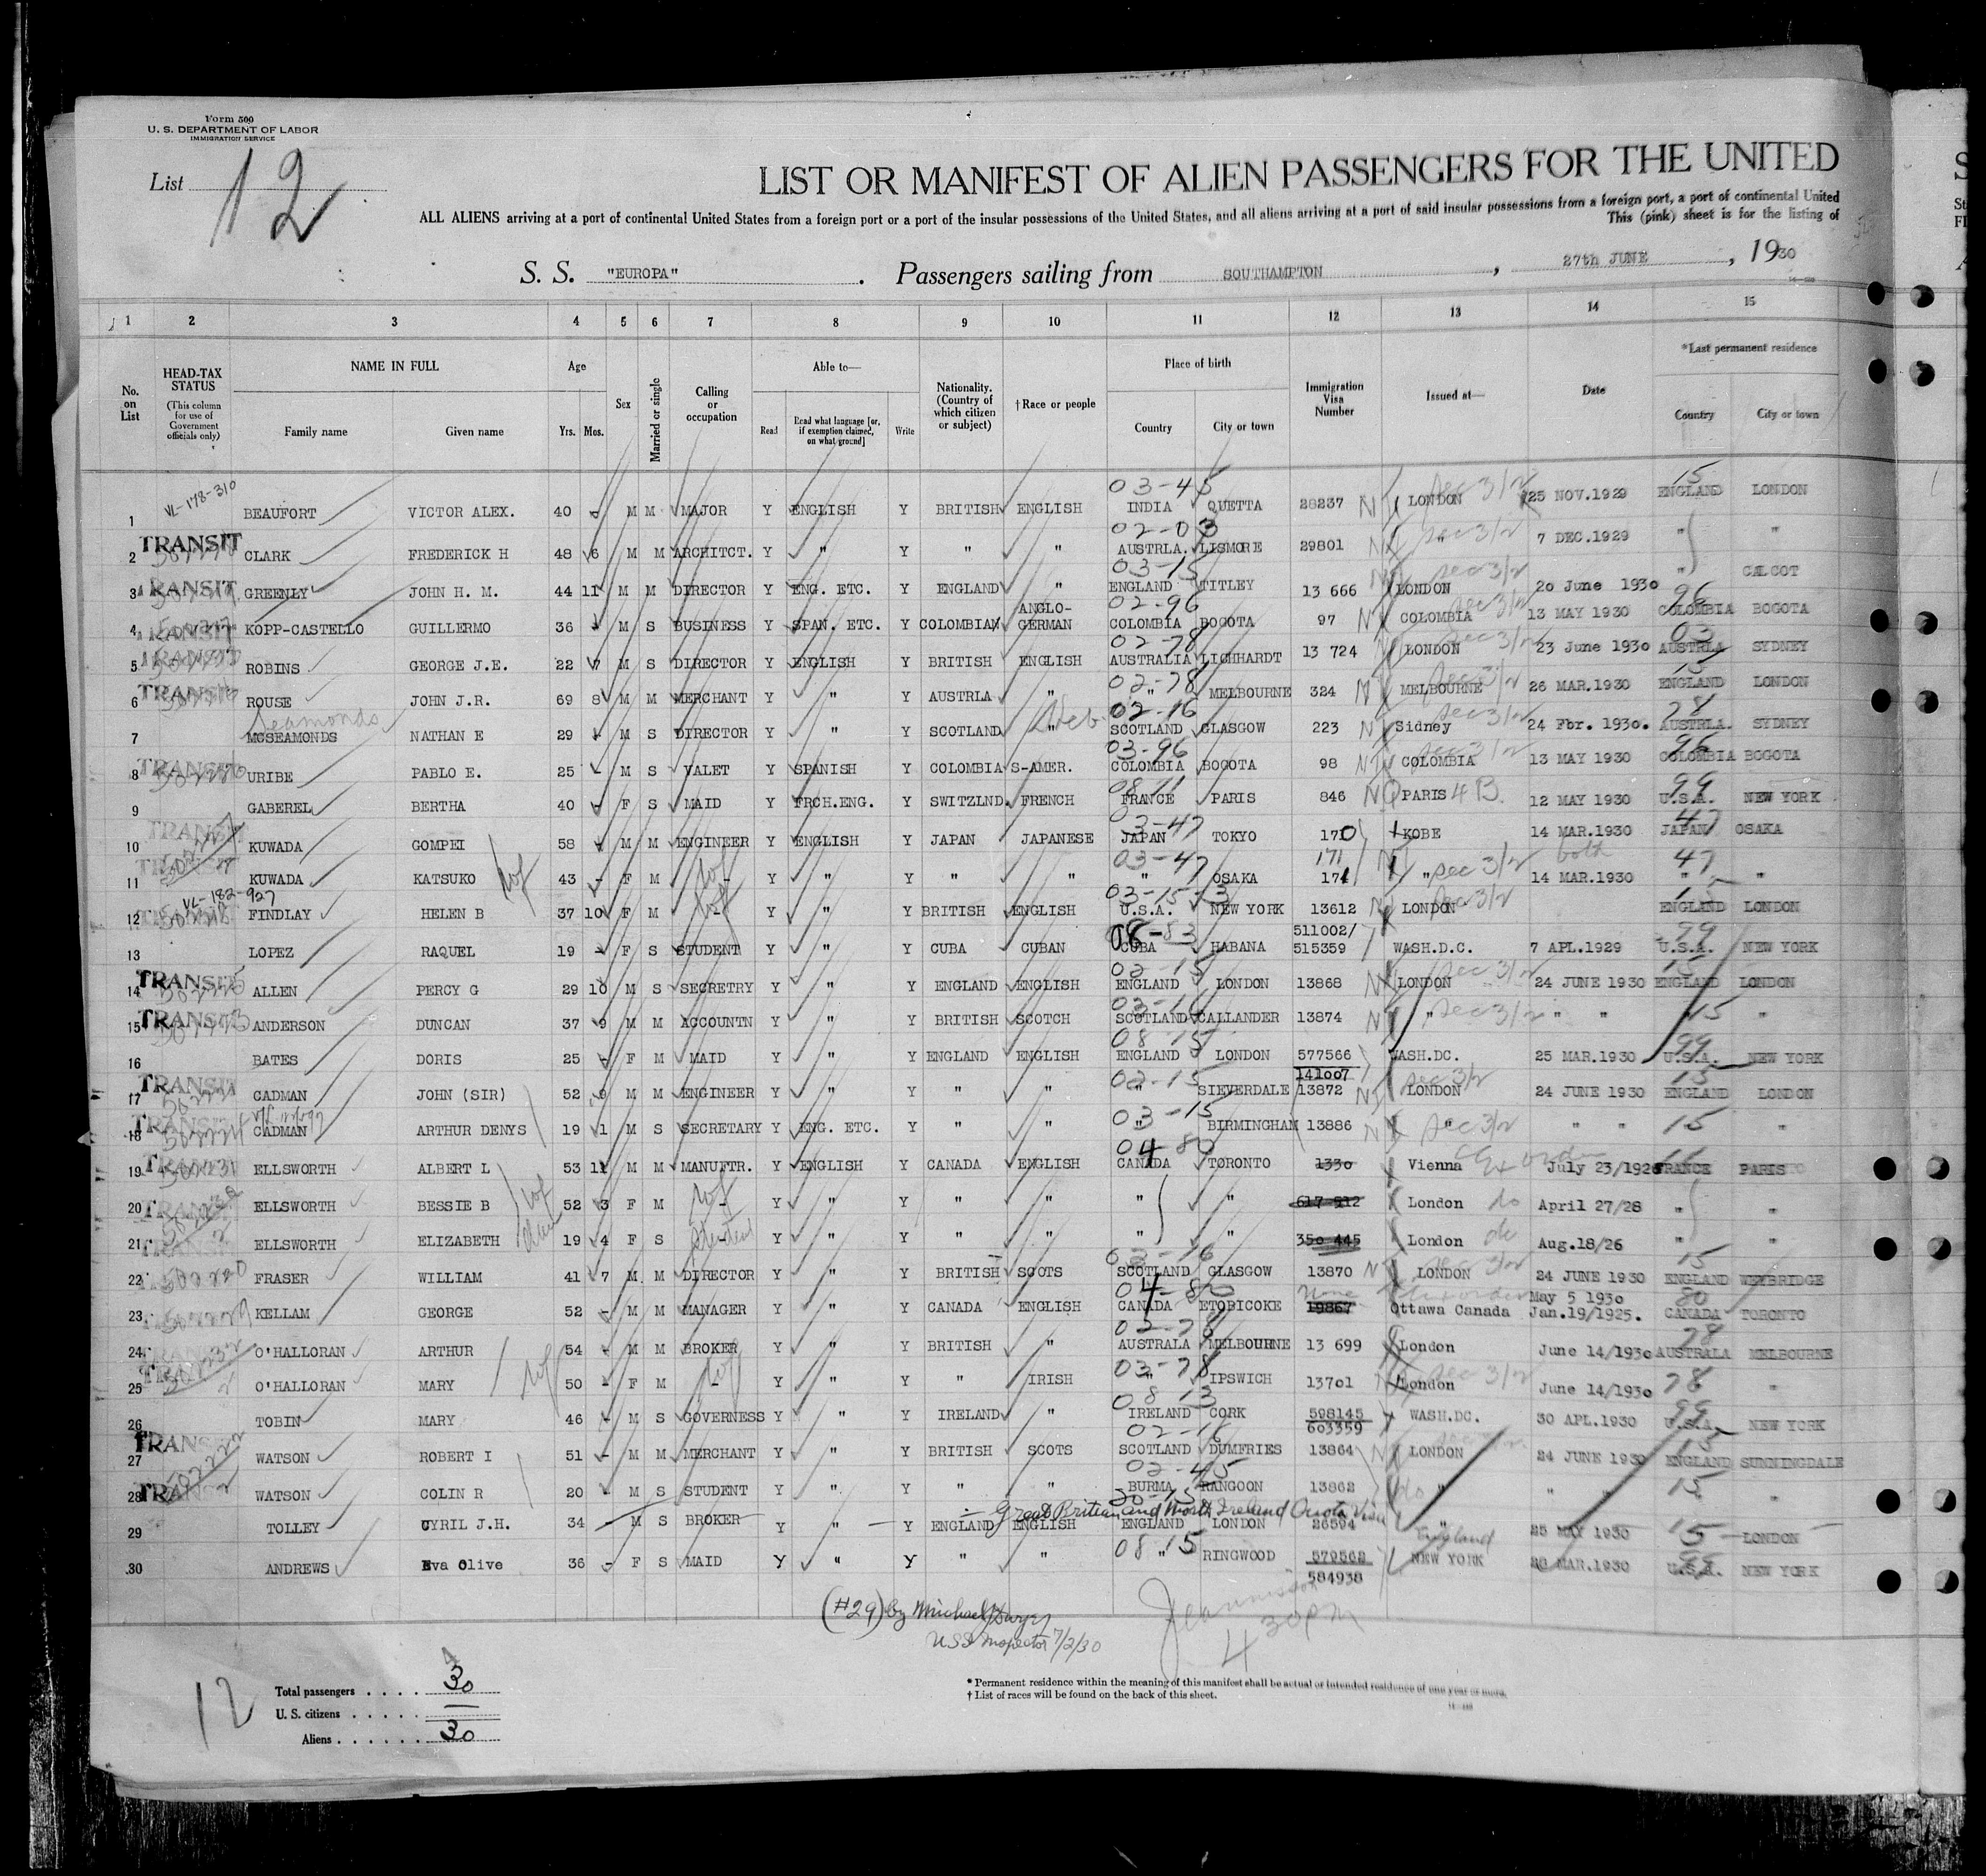 Form 500
U. S. DEPARTMENT OF LABOR
IMMIGRATION SERVICE
List 12
LIST OR MANIFEST OF ALIEN PASSENGERS FOR THE UNITED
ALL ALIENS arriving at a port of continental United States from a foreign port or a port of the insular possessions of the United States, and all aliens arriving at a port of said insular possessions from a foreign port, a port of continental United
This (pink) sheet is for the listing of
S. S. "EUROPA". Passengers sailing from SOUTHAMPTON, 27th JUNE, 1930
1 2 3 4 5 6 7 8 9 10 11 12 13 14 15
No. on List
HEAD-TAX STATUS
(This column for use of Government officials only)
NAME IN FULL
Family name Given name
Age
Yrs. Mos.
Sex
Married or single
Calling or occupation
Able to—
Read Read what language [or, if exemption claimed, on what ground] Write
Nationality. (Country of which citizen or subject)
†Race or people
Place of birth
Country City or town
Immigration Visa Number
Issued at—
Date
*Last permanent residence
Country City or town
VL-178-310 03-45 Sec 3/2 15
1 BEAUFORT VICTOR ALEX. 40 - M M MAJOR Y ENGLISH Y BRITISH ENGLISH INDIA QUETTA 28237 LONDON 25 NOV.1929 ENGLAND LONDON
02-03 Sec 3/2
2 TRANSIT CLARK FREDERICK H 48 6 M M ARCHITCT. Y " Y " " AUSTRLA. LISMORE 29801 " 7 DEC.1929 " "
03-15 Sec 3/2
3 TRANSIT GREENLY JOHN H. M. 44 11 M M DIRECTOR Y ENG. ETC. Y ENGLAND " ENGLAND TITLEY 13 666 LONDON 20 June 1930 " CALCOT
02-96 Sec 3/2 96
4 TRANSIT KOPP-CASTELLO GUILLERMO 36 - M S BUSINESS Y SPAN. ETC. Y COLOMBIAN ANGLO-GERMAN COLOMBIA BOGOTA 97 COLOMBIA 13 MAY 1930 COLOMBIA BOGOTA
02-78 Sec 3/2 03
5 TRANSIT ROBINS GEORGE J.E. 22 7 M S DIRECTOR Y ENGLISH Y BRITISH ENGLISH AUSTRALIA LICHHARDT 13 724 LONDON 23 June 1930 AUSTRLA SYDNEY
02-78 Sec 3/2 15
6 TRANSIT ROUSE JOHN J.R. 69 8 M M MERCHANT Y " Y AUSTRLA " " MELBOURNE 324 MELBOURNE 26 MAR.1930 ENGLAND LONDON
Seamonds 02-16 Sec 3/2 78
7 MCSEAMONDS NATHAN E 29 - M S DIRECTOR Y " Y SCOTLAND " SCOTLAND GLASGOW 223 Sidney 24 Fbr. 1930. AUSTRLA. SYDNEY
03-96 Sec 3/2 96
8 TRANSIT URIBE PABLO E. 25 - M S VALET Y SPANISH Y COLOMBIA S-AMER. COLOMBIA BOGOTA 98 COLOMBIA 13 MAY 1930 COLOMBIA BOGOTA
08 11 99
9 GABEREL BERTHA 40 - F S MAID Y FRCH.ENG. Y SWITZLND. FRENCH FRANCE PARIS 846 NQ PARIS 4 B. 12 MAY 1930 U.S.A. NEW YORK
03-47 47
10 TRANSIT KUWADA GOMPEI 58 - M M ENGINEER Y ENGLISH Y JAPAN JAPANESE JAPAN TOKYO 170 KOBE 14 MAR.1930 JAPAN OSAKA
wf 03-47 171 Sec 3/2 both 47
11 TRANSIT KUWADA KATSUKO 43 - F M - Y " Y " " " OSAKA 171 " 14 MAR.1930 " "
VL-182-927 03-15 Sec 3/2 15
12 FINDLAY HELEN B 37 10 F M - Y " Y BRITISH ENGLISH U.S.A. NEW YORK 13612 LONDON ENGLAND LONDON
08-83 511002/ 99
13 LOPEZ RAQUEL 19 - F S STUDENT Y " Y CUBA CUBAN CUBA HABANA 515359 WASH.D.C. 7 APL.1929 U.S.A. NEW YORK
02-15 Sec 3/2 15
14 TRANSIT ALLEN PERCY G 29 10 M S SECRETRY Y " Y ENGLAND ENGLISH ENGLAND LONDON 13868 LONDON 24 JUNE 1930 ENGLAND LONDON
03-16 Sec 3/2
15 TRANSIT ANDERSON DUNCAN 37 9 M M ACCOUNTN Y " Y BRITISH SCOTCH SCOTLAND CALLANDER 13874 " " " 15 "
08-15 99
16 BATES DORIS 25 - F M MAID Y " Y ENGLAND ENGLISH ENGLAND LONDON 577566 WASH.DC. 25 MAR.1930 U.S.A. NEW YORK
02-15 141007 Sec 3/2 15
17 TRANSIT CADMAN JOHN (SIR) 52 9 M M ENGINEER Y " Y " " " SIEVERDALE 13872 LONDON 24 JUNE 1930 ENGLAND LONDON
03-15 Sec 3/2
18 TRANSIT CADMAN ARTHUR DENYS 19 1 M S SECRETARY Y ENG. ETC. Y " " " BIRMINGHAM 13886 " " " 15 "
04-80
19 TRANSIT ELLSWORTH ALBERT L 53 11 M M MANUFTR. Y ENGLISH Y CANADA ENGLISH CANADA TORONTO 1330 Vienna July 23/1926 FRANCE PARIS
20 TRANSIT ELLSWORTH BESSIE B wf 52 3 F M - Y " Y " " " " 617 912 London do April 27/28 " "
21 TRANSIT ELLSWORTH ELIZABETH 19 4 F S Student Y " Y " " " " 350 445 London do Aug.18/26 " "
03-16 15
22 FRASER WILLIAM 41 7 M M DIRECTOR Y " Y BRITISH SCOTS SCOTLAND GLASGOW 13870 LONDON 24 JUNE 1930 ENGLAND WEYBRIDGE
04-80 none May 5 1930 80
23 KELLAM GEORGE 52 - M M MANAGER Y " Y CANADA ENGLISH CANADA ETOPICOKE 19867 Ottawa Canada Jan.19/1925. CANADA TORONTO
02-78 78
24 O'HALLORAN ARTHUR 54 - M M BROKER Y " Y BRITISH " AUSTRALA MELBOURNE 13 699 London June 14/1930 AUSTRALA MELBOURNE
wf 03-78 Sec 3/2
25 O'HALLORAN MARY 50 - F M - Y " Y " IRISH " IPSWICH 13701 London June 14/1930 78 "
08 13 99
26 TOBIN MARY 46 - M S GOVERNESS Y " Y IRELAND " IRELAND CORK 598145 603359 WASH.DC. 30 APL.1930 U.S.A. NEW YORK
02-16 15
27 TRANSIT WATSON ROBERT I 51 - M M MERCHANT Y " Y BRITISH SCOTS SCOTLAND DUMFRIES 13864 LONDON 24 JUNE 1930 ENGLAND SUNNINGDALE
02-45
28 TRANSIT WATSON COLIN R 20 - M S STUDENT Y " Y " " BURMA RANGOON 13862 do " " " 15 "
Great Britian and North Ireland Quota Visa
29 TOLLEY CYRIL J.H. 34 - M S BROKER Y " Y ENGLAND ENGLISH ENGLAND LONDON 26594 " England 25 MAY 1930 15 LONDON
08 15
30 ANDREWS Eva Olive 36 - F S MAID Y " Y " " " RINGWOOD 579562 584938 NEW YORK 28 MAR.1930 U.S.A. NEW YORK
(#29) by Michael
USI Inspector 7/2/30
430pm
4
12
Total passengers . . . . 30
U. S. citizens . . . . .
Aliens . . . . . . 30
* Permanent residence within the meaning of this manifest shall be actual or intended residence of one year or more.
† List of races will be found on the back of this sheet.